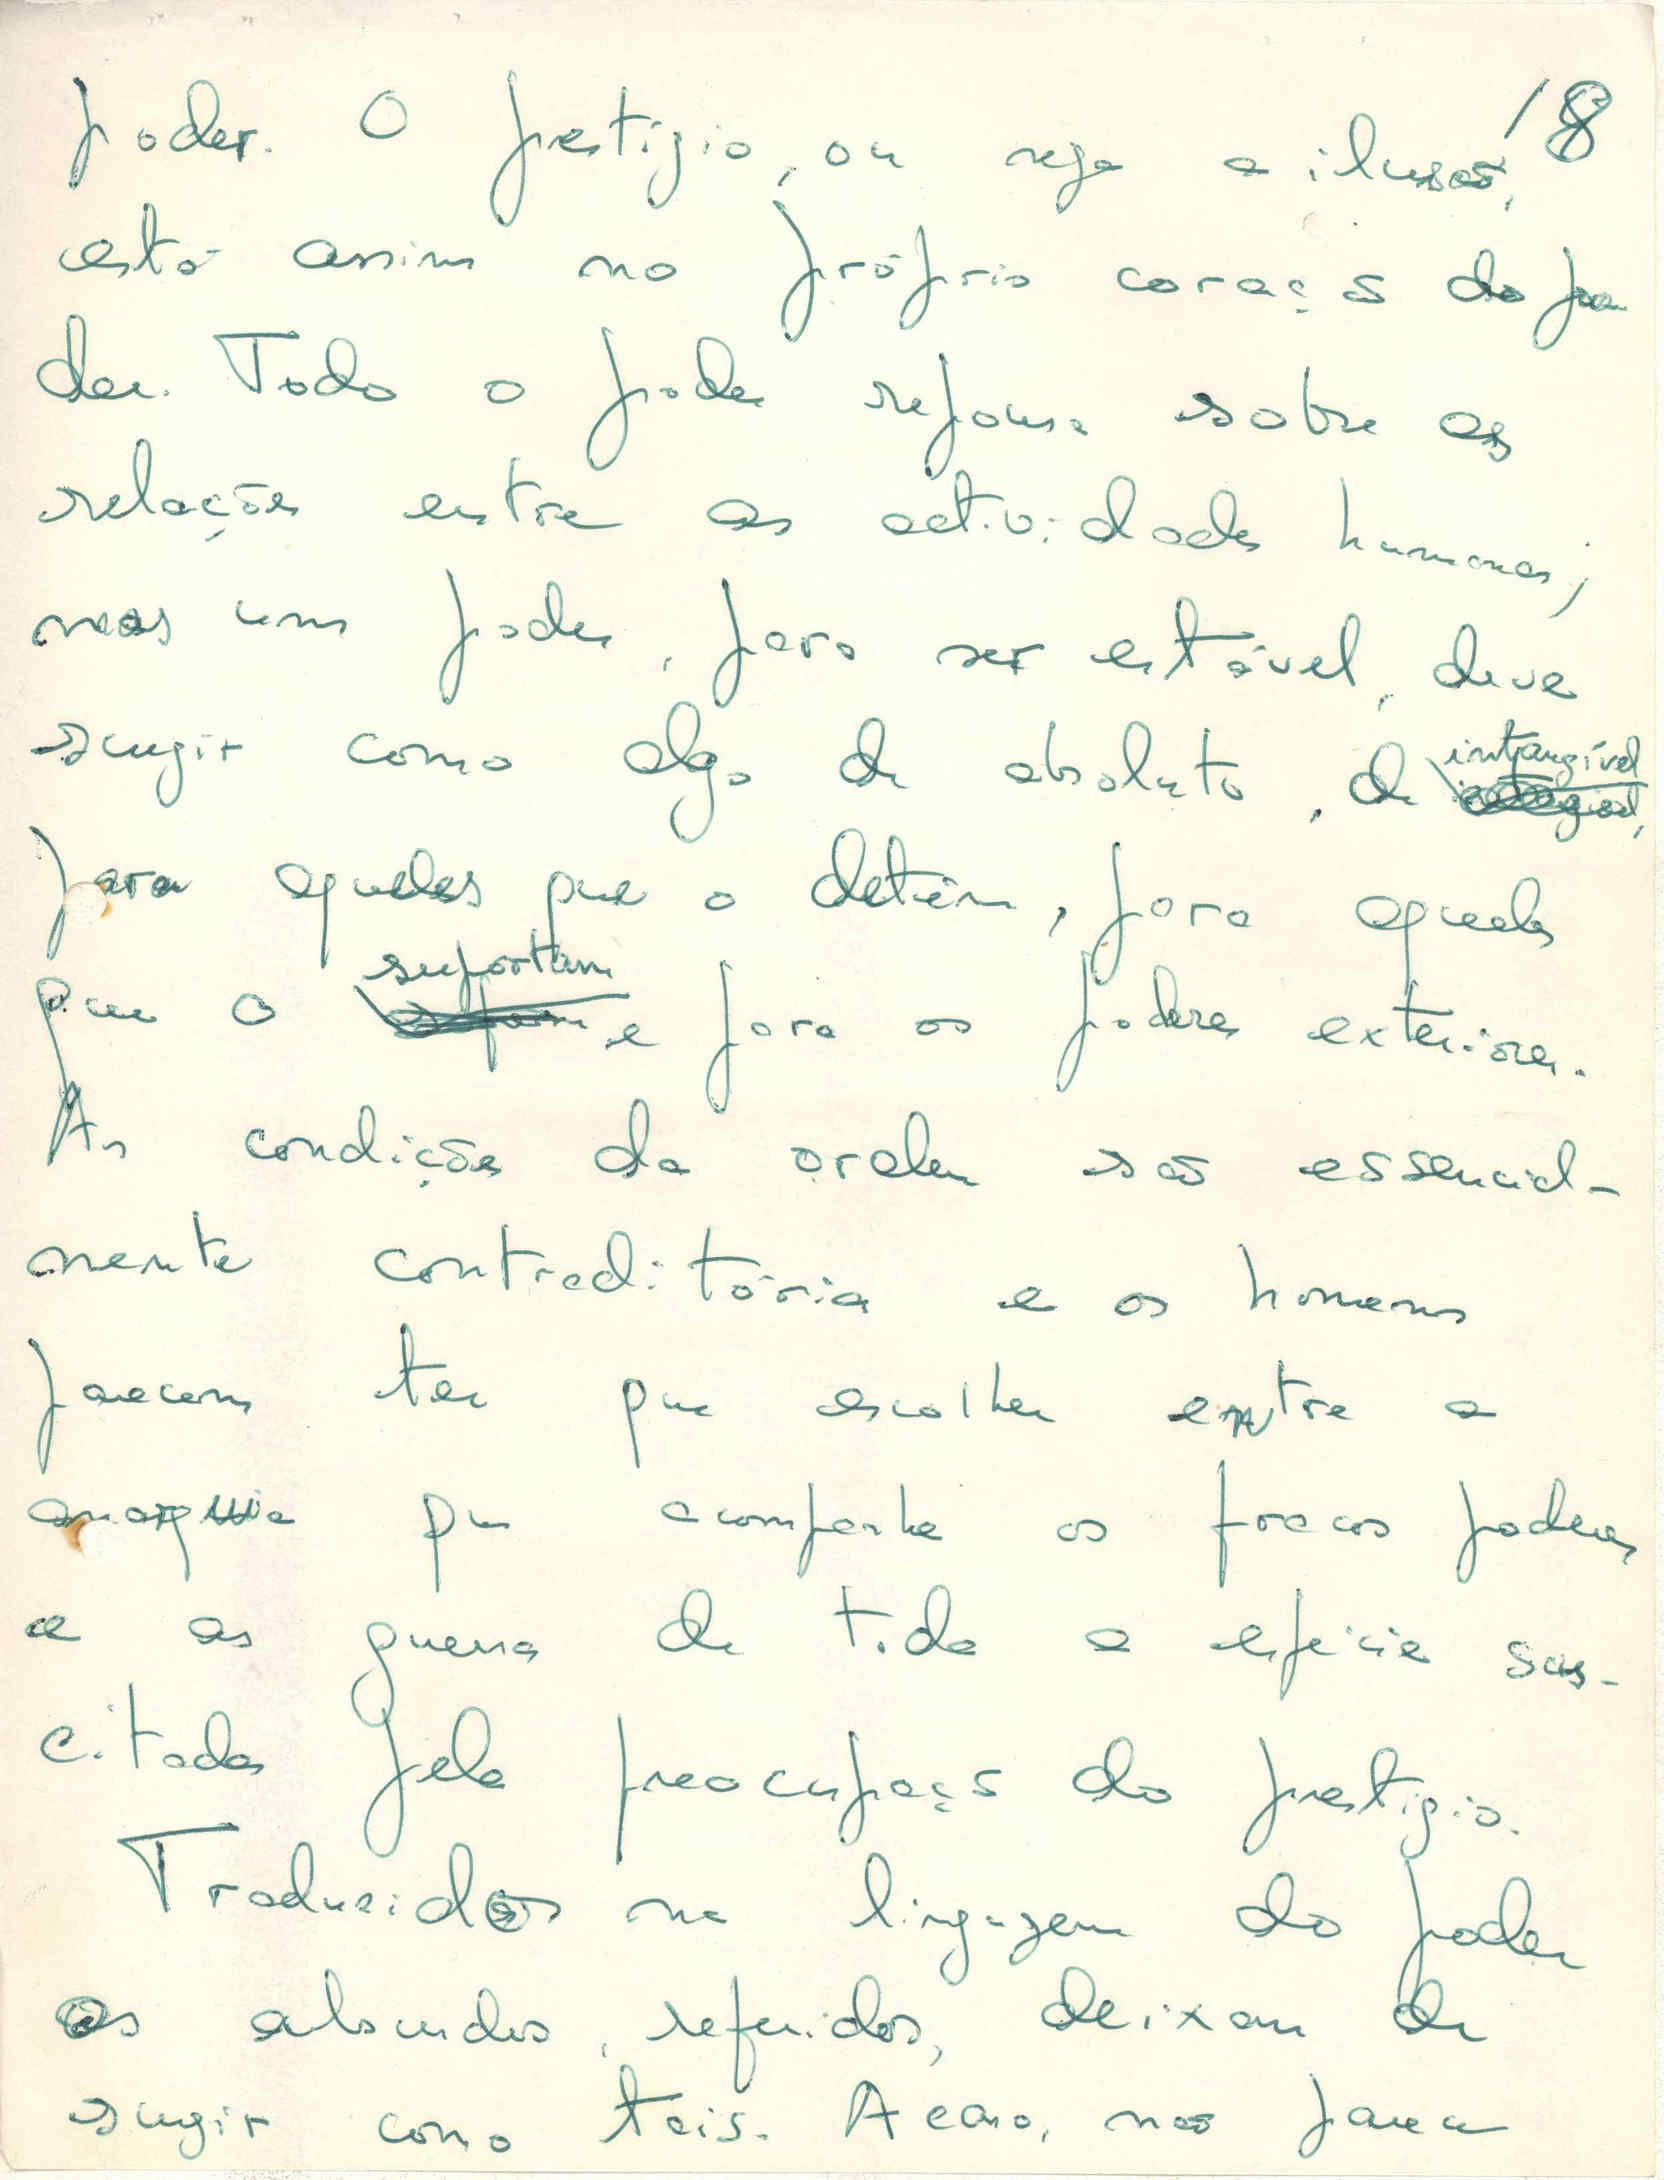 18
poder. O prestígio, ou seja a ilusão,
está assim no próprio coração do po
der. Todo o poder repousa sobre as
relações entre as actividades humanas;
mas um poder, para ser estável, deve
surgir como algo de absoluto, de intangível,
para aqueles que o detêm, para aqueles
que o suportam e para os poderes exteriores.
As condições da ordem são essencial-
mente contraditória e os homens
parecem ter que escolher entre a
anarquia que acompanha os fracos poderes
e as guerras de toda a espécie sus-
citadas pela preocupação do prestígio.
Traduzidos na linguagem do poder
os absurdos, referidos, deixam de
surgir como tais. Acaso, não parece